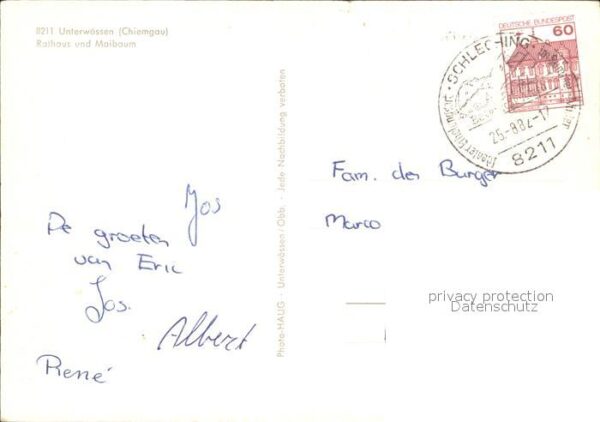 8211 Unterwössen (Chiemgau)
Rathaus und Maibaum
DEUTSCHE BUNDESPOST
60
SCHLECHING
25.-8.82-17
8211
Jos
De groeten
van Eric
Jos.
Albert
René
Photo-HAUG · Unterwössen/Obb. · Jede Nachbildung verboten
Fam. des Burger
Marco
privacy protection
Datenschutz